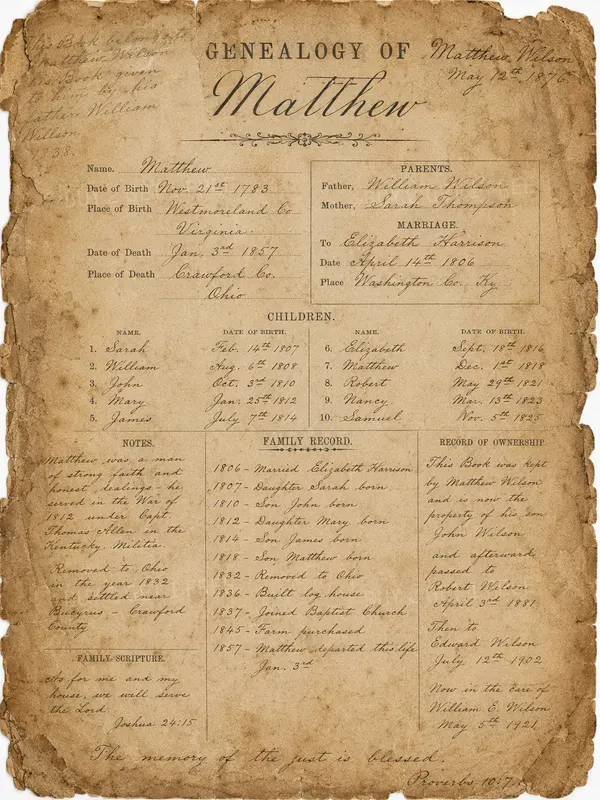 This Book belongs to
Matthew Wilson
This Book given
to him by his
father William
Willson
1838.
GENEALOGY OF
Matthew
Matthew Wilson
May 12th 1876
Name. Matthew
Date of Birth Nov. 21st 1783
Place of Birth Westmoreland Co
Virginia
Date of Death Jan. 3rd 1857
Place of Death Crawford Co.
Ohio
PARENTS.
Father, William Wilson
Mother, Sarah Thompson
MARRIAGE.
To Elizabeth Harrison
Date April 14th 1806
Place Washington Co. Ky
CHILDREN.
NAME. DATE OF BIRTH.
1. Sarah Feb. 14th 1807
2. William Aug. 6th 1808
3. John Oct. 3rd 1810
4. Mary Jan. 25th 1812
5. James July 7th 1814
NAME. DATE OF BIRTH.
6. Elizabeth Sept. 18th 1816
7. Matthew Dec. 1st 1818
8. Robert May 29th 1821
9. Nancy Mar. 13th 1823
10. Samuel Nov. 5th 1825
NOTES.
Matthew was a man
of strong faith and
honest dealings - he
served in the War of
1812 under Capt.
Thomas Allen in the
Kentucky Militia.
Removed to Ohio
in the year 1832
and settled near
Bucyrus - Crawford
County
FAMILY SCRIPTURE.
As for me and my
house, we will serve
the Lord.
Joshua 24:15
FAMILY RECORD.
1806 - Married Elizabeth Harrison
1807 - Daughter Sarah born
1810 - Son John born
1812 - Daughter Mary born
1814 - Son James born
1818 - Son Matthew born
1832 - Removed to Ohio
1836 - Built log house
1837 - Joined Baptist Church
1845 - Farm purchased
1857 - Matthew departed this life
Jan. 3rd
RECORD OF OWNERSHIP.
This Book was kept
by Matthew Wilson
and is now the
property of his son
John Wilson
and afterward
passed to
Robert Wilson
April 3rd 1881
Then to
Edward Wilson
July 12th 1902
Now in the care of
William E. Wilson
May 5th 1921
The memory of the just is blessed.
Proverbs 10:7